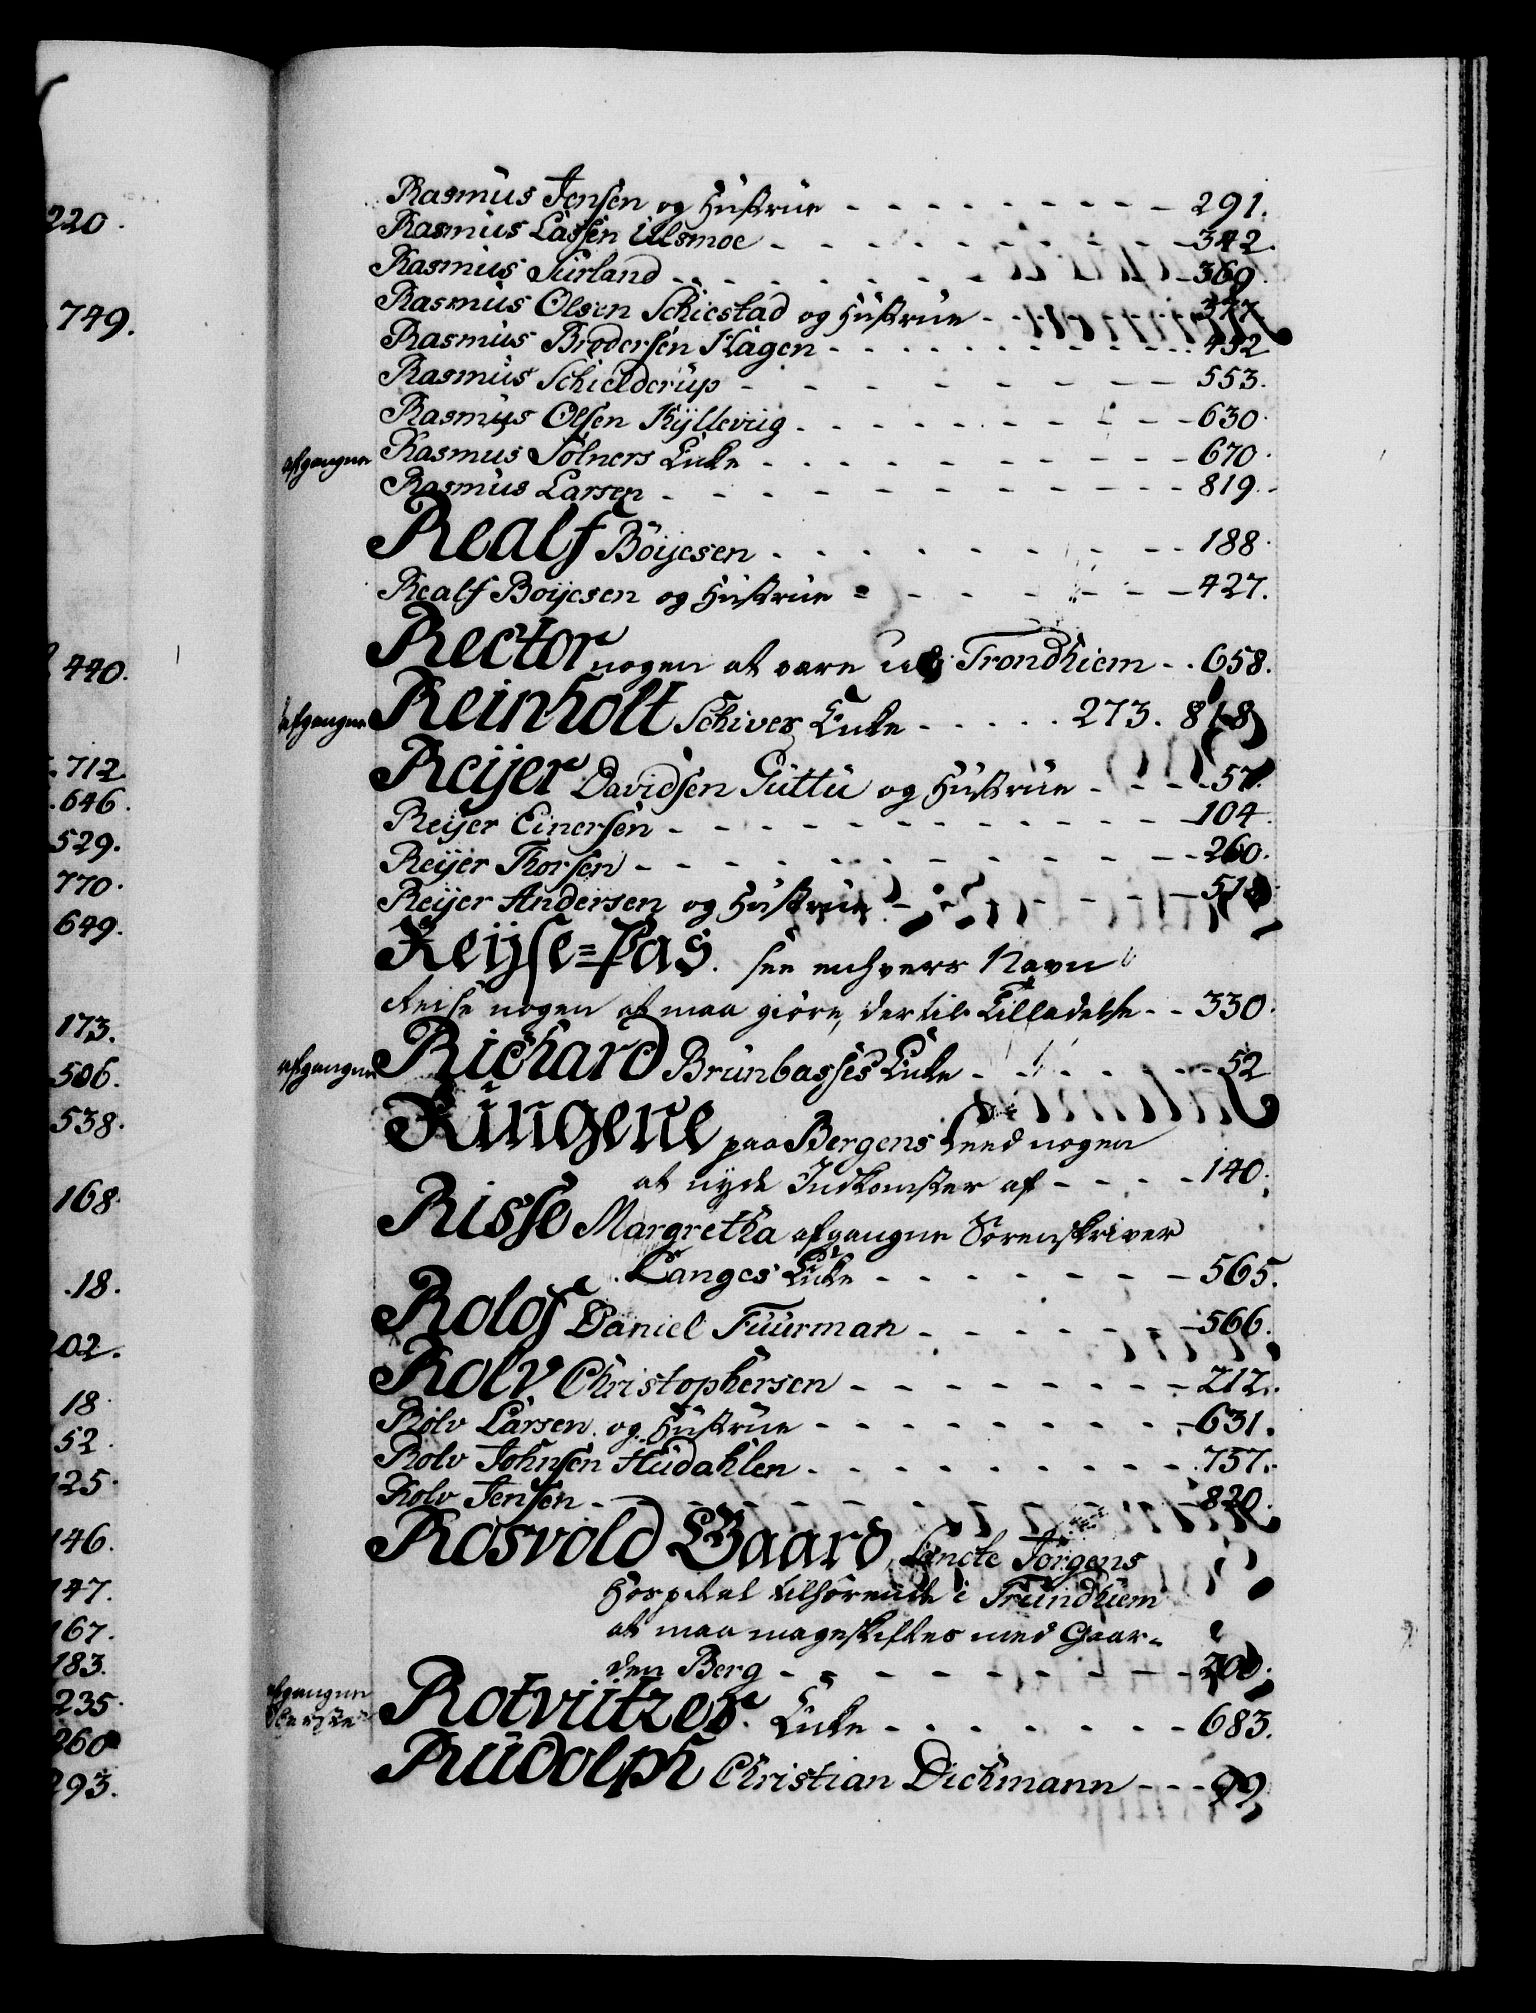 220.
749.
440.
712.
646.
529.
770.
649.
173.
506.
538.
168.
18.
202.
18.
52.
125.
146.
147.
167.
183.
235.
260
293.
Rasmus Jensen og Hustrue - - - 291.
Rasmus Lassen Ulsmoe - - - 342.
Rasmus Surland - - - 369.
Rasmus Olsen Schiestad og Hustrue - - -
Rasmus Brodersen Hagen - - - 452
Rasmus Schielderup - - - 553.
Rasmus Olsen Kyllevig - - - 630.
afgangne Rasmus Solners Enke - - - 670.
Rasmus Larsen - - - 819.
Realf Böijesen - - - 188.
Realf Boijesen og Hustrue - - - 427.
Rector nogen at være udj Trondhiem - - 658.
afgangne Reinholt Schives Enke - - - 273. 818
Reijer Davidsen Puttu og Hustrue - - - 57.
Reijer Einersen - - - 104.
Reijer Thorsen - - - 260.
Reijer Andersen og Hustrue - - - 518
Reijse=Pas. see enhvers Navn
Reise nogen at maa giøre, dertil Tilladelse - - 330.
afgangne Richard Brunbasses Enke - - - 52
Ringene paa Bergens Leed nogen
at nyde Indkomster af - - - 140.
Risse Margretha afgangne Sorenskriver
Langes Enke - - - 565.
Rolof Daniel Fuurman - - - 566.
Rolv Christophersen - - - 212.
Rolv Larsen og Hustrue - - - 631.
Rolv Johnsen Hudahlen - - - 757.
Rolv Jensen - - - 820.
Rosvold Gaard, Sancte Jørgens
Hospital tilhørende i Trundhiem
at maa mageskiftes med Gaar-
den Berg - - - 200.
afgangne
Rotvitzes Enke - - - 683.
Rudolph Christian Dichmann - - - 99.